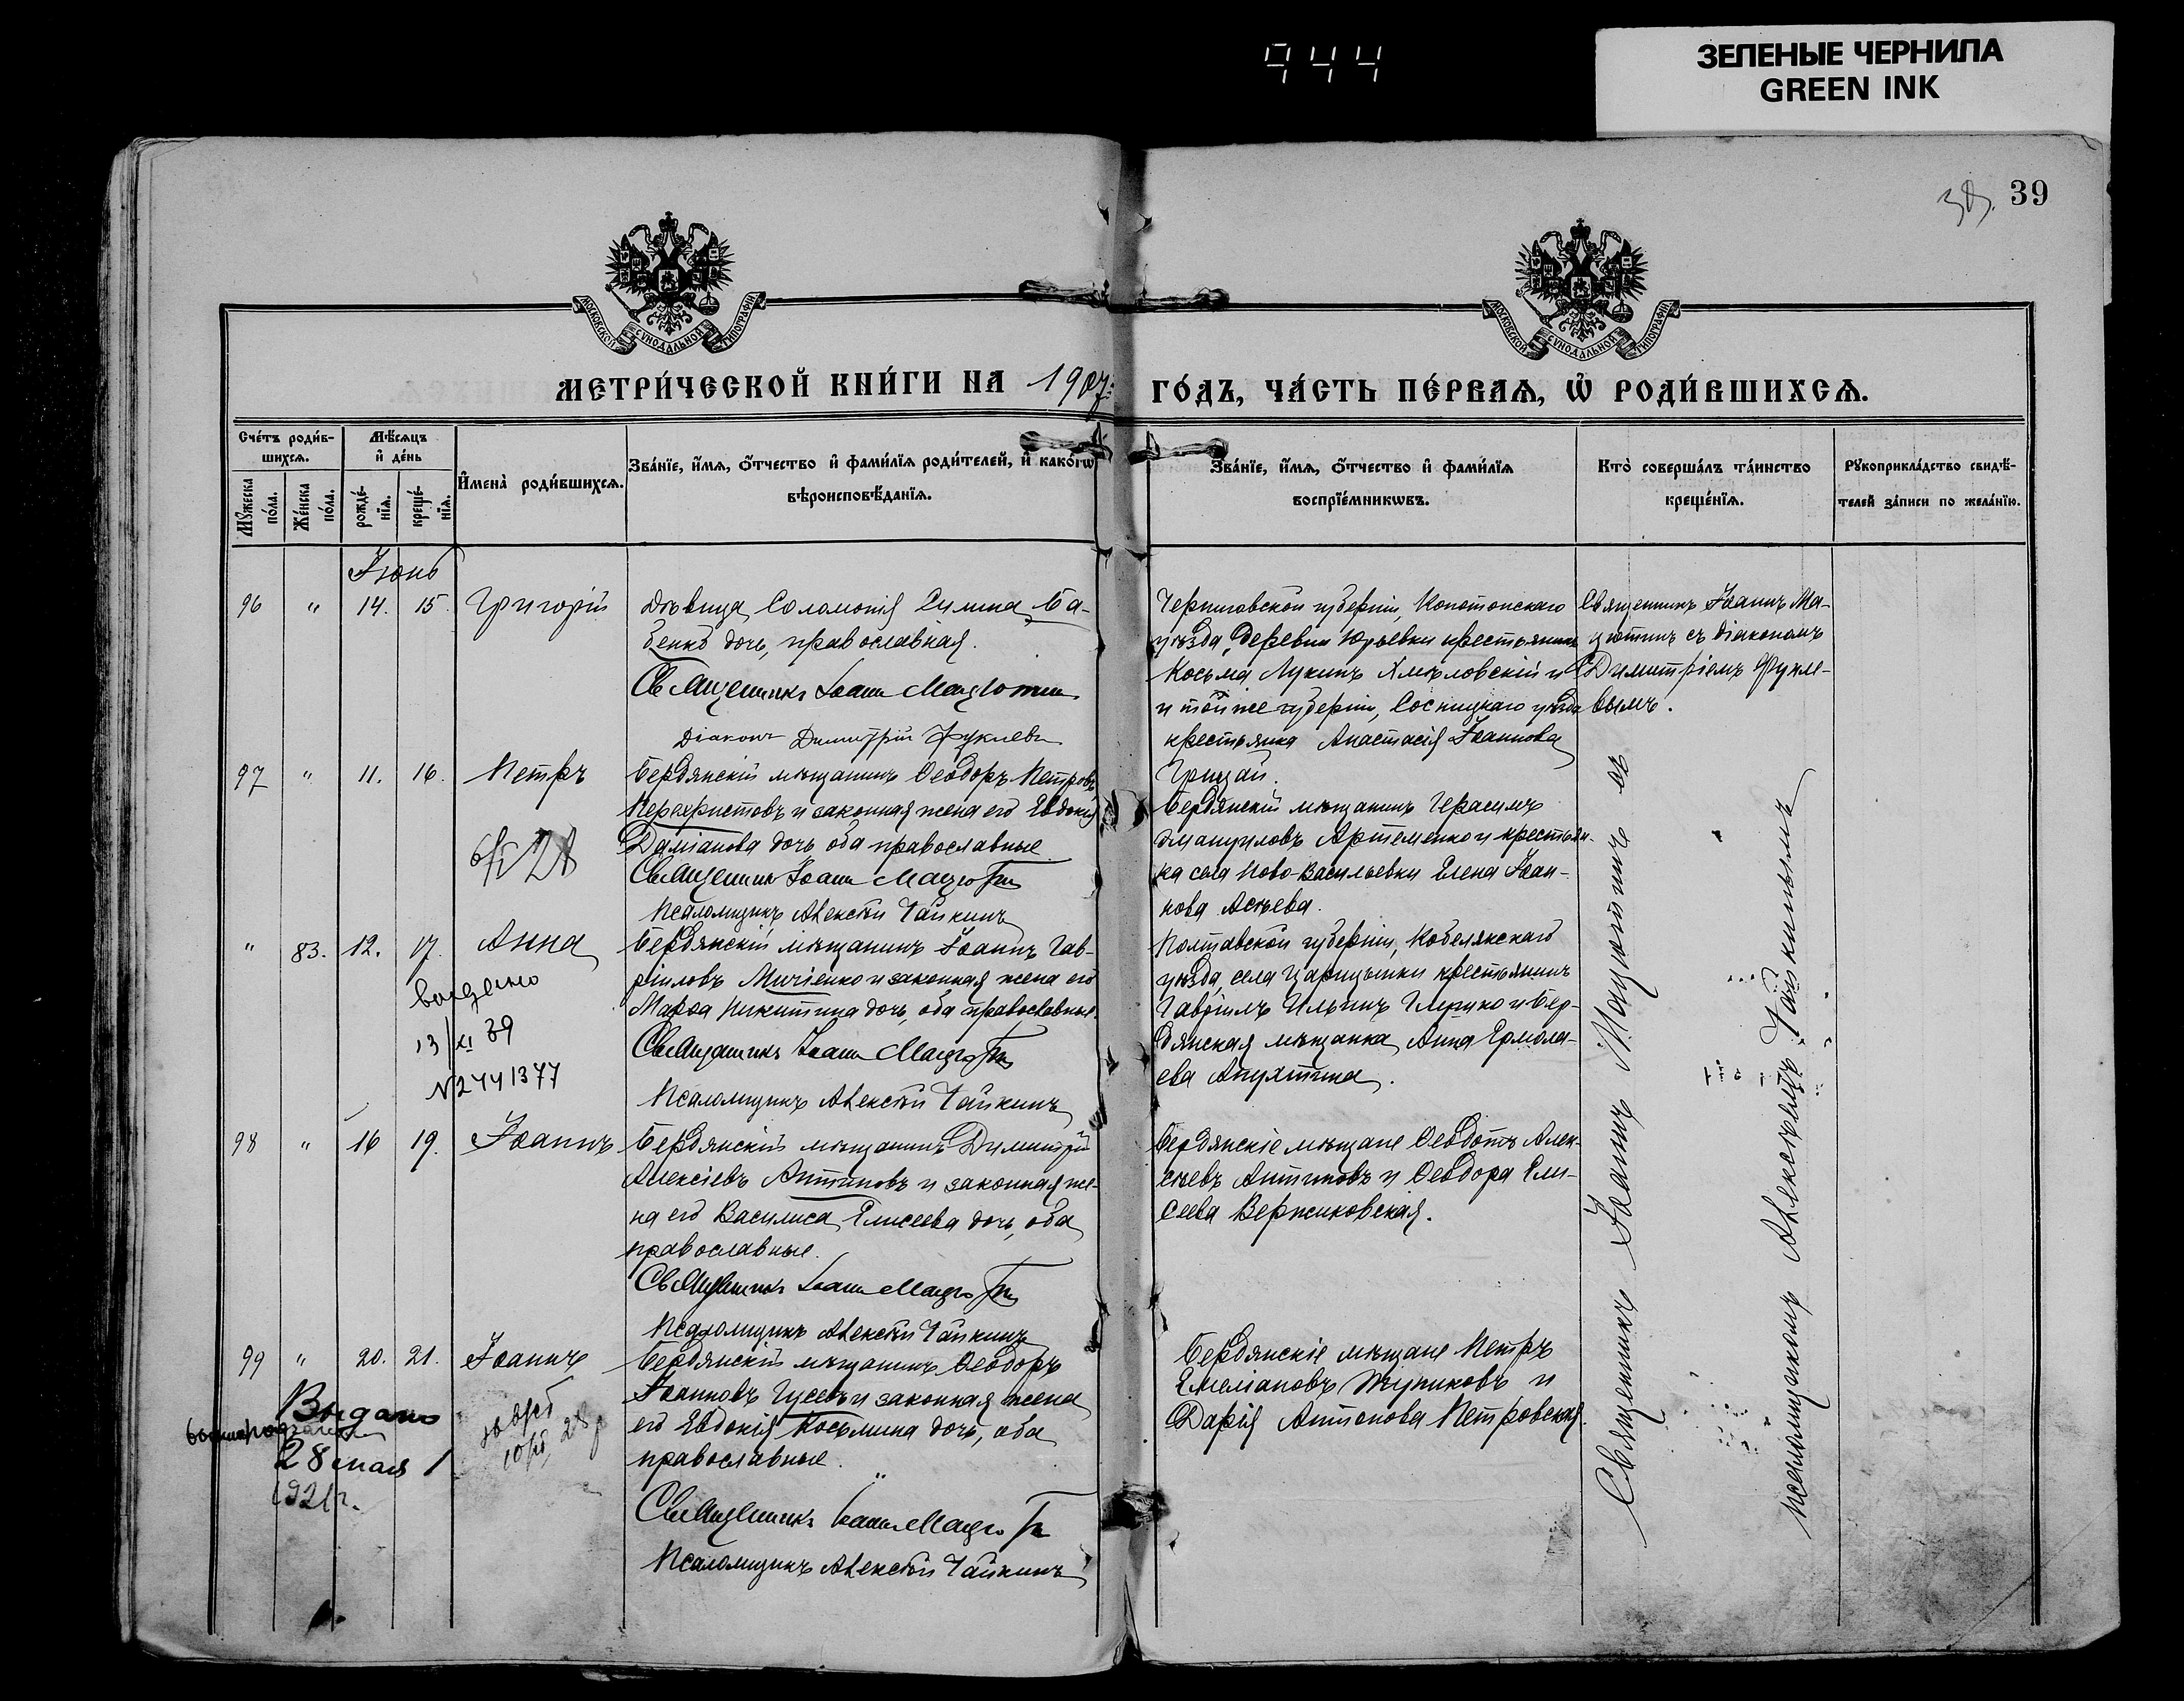 944
ЗЕЛЕНЫЕ ЧЕРНИЛА
GREEN INK
39
МОСКОВСКОЙ СУНОДАЛЬНОЙ ТИПОГРАФІИ
МОСКОВСКОЙ СУНОДАЛЬНОЙ ТИПОГРАФІИ
МЕТРИ́ЧЕСКОЙ КНИ́ГИ НА 1907
ГО́ДЪ, ЧА́СТЬ ПЕ́РВАѦ, Ѡ҆ РОДИ́ВШИХСѦ.
Сче́тъ роди́в-
шихсѧ.
Мѣ́сѧцъ
и҆ де́нь
Мꙋ́жеска
по́ла.
Же́нска
по́ла.
рожде́-
нїѧ.
креще́-
нїѧ.
И҆мена̀ роди́вшихсѧ.
Зва́нїе, и҆́мѧ, ѻ҆́тчество и҆ фами́лїѧ роди́телей, и҆ како́гѡ
вѣроисповѣ́данїѧ.
Зва́нїе, и҆́мѧ, ѻ҆́тчество и҆ фами́лїѧ
воспрїе́мникѡвъ.
Кто̀ соверша́лъ та́инство
креще́нїѧ.
Рꙋкоприкла́дство свидѣ́-
телей за́писи по жела́нїю.
Іюнь
96 " 14. 15. Григорій
Дѣвица Соломонія Ба-
бенко дочь, православная.
Священникъ Іоаннъ Мацютинъ
Діаконъ Димитрій Фуклевъ
Черниговской губерніи, Конотопскаго
уѣзда, деревни Юрьевки крестьянинъ
Косьма Лукинъ Хмѣловскій и
и той же губерніи, Сосницкаго уѣзда
крестьянка Анастасія Іоаннова
Грицай.
Священникъ Іоаннъ Ма-
цютинъ съ діакономъ
Димитріемъ Фукле-
вымъ.
97 " 11. 16. Петръ
Бердянскій мѣщанинъ Ѳеодоръ Петровъ
Перехристовъ и законная жена его Евдокія
Даміанова дочь оба православные
Священникъ Іоаннъ Мацютинъ
Псаломщикъ Алексѣй Чайкинъ
Бердянскій мѣщанинъ Герасимъ
Эмануиловъ Артеменко и крестьян-
ка села Ново-Васильевки Елена Іоан-
нова Асѣева.
" 83. 12. 17. Анна
выдано
13/XI 39
N2441377
Бердянскій мѣщанинъ Іоаннъ Гав-
ріиловъ Мичіенко и законная жена его
Марѳа Никитина дочь, оба православные.
Священникъ Іоаннъ Мацютинъ
Псаломщикъ Алексѣй Чайкинъ
Полтавской губерніи, Кобелякскаго
уѣзда, села Царицынки крестьянинъ
Гавріилъ Ильинъ и Бер-
дянская мѣщанка Анна Ермола-
ева Апухтина.
98 " 16 19. Іоаннъ
Бердянскій мѣщанинъ Димитрій
Алексіевъ Антиповъ и законная же-
на его Василиса Елисеева дочь, оба
православные.
Священникъ Іоаннъ Мацютинъ
Псаломщикъ Алексѣй Чайкинъ
Бердянскіе мѣщане Ѳеодотъ Алек-
сѣевъ Антиповъ и Ѳеодора Ели-
сеева Вержиковская.
99 " 20. 21. Іоаннъ
Выдано
28 мая
1921 г.
Бердянскій мѣщанинъ Ѳеодоръ
Іоанновъ Гусевъ и законная жена
его Евдокія Косьмина дочь, оба
православные.
Священникъ Іоаннъ Мацютинъ
Псаломщикъ Алексѣй Чайкинъ
Бердянскіе мѣщане Петръ
Емеліановъ Журиковъ и
Дарія Антонова Петровская.
Священникъ Іоаннъ Мацютинъ съ
псаломщикомъ Алексѣемъ Чайкинымъ